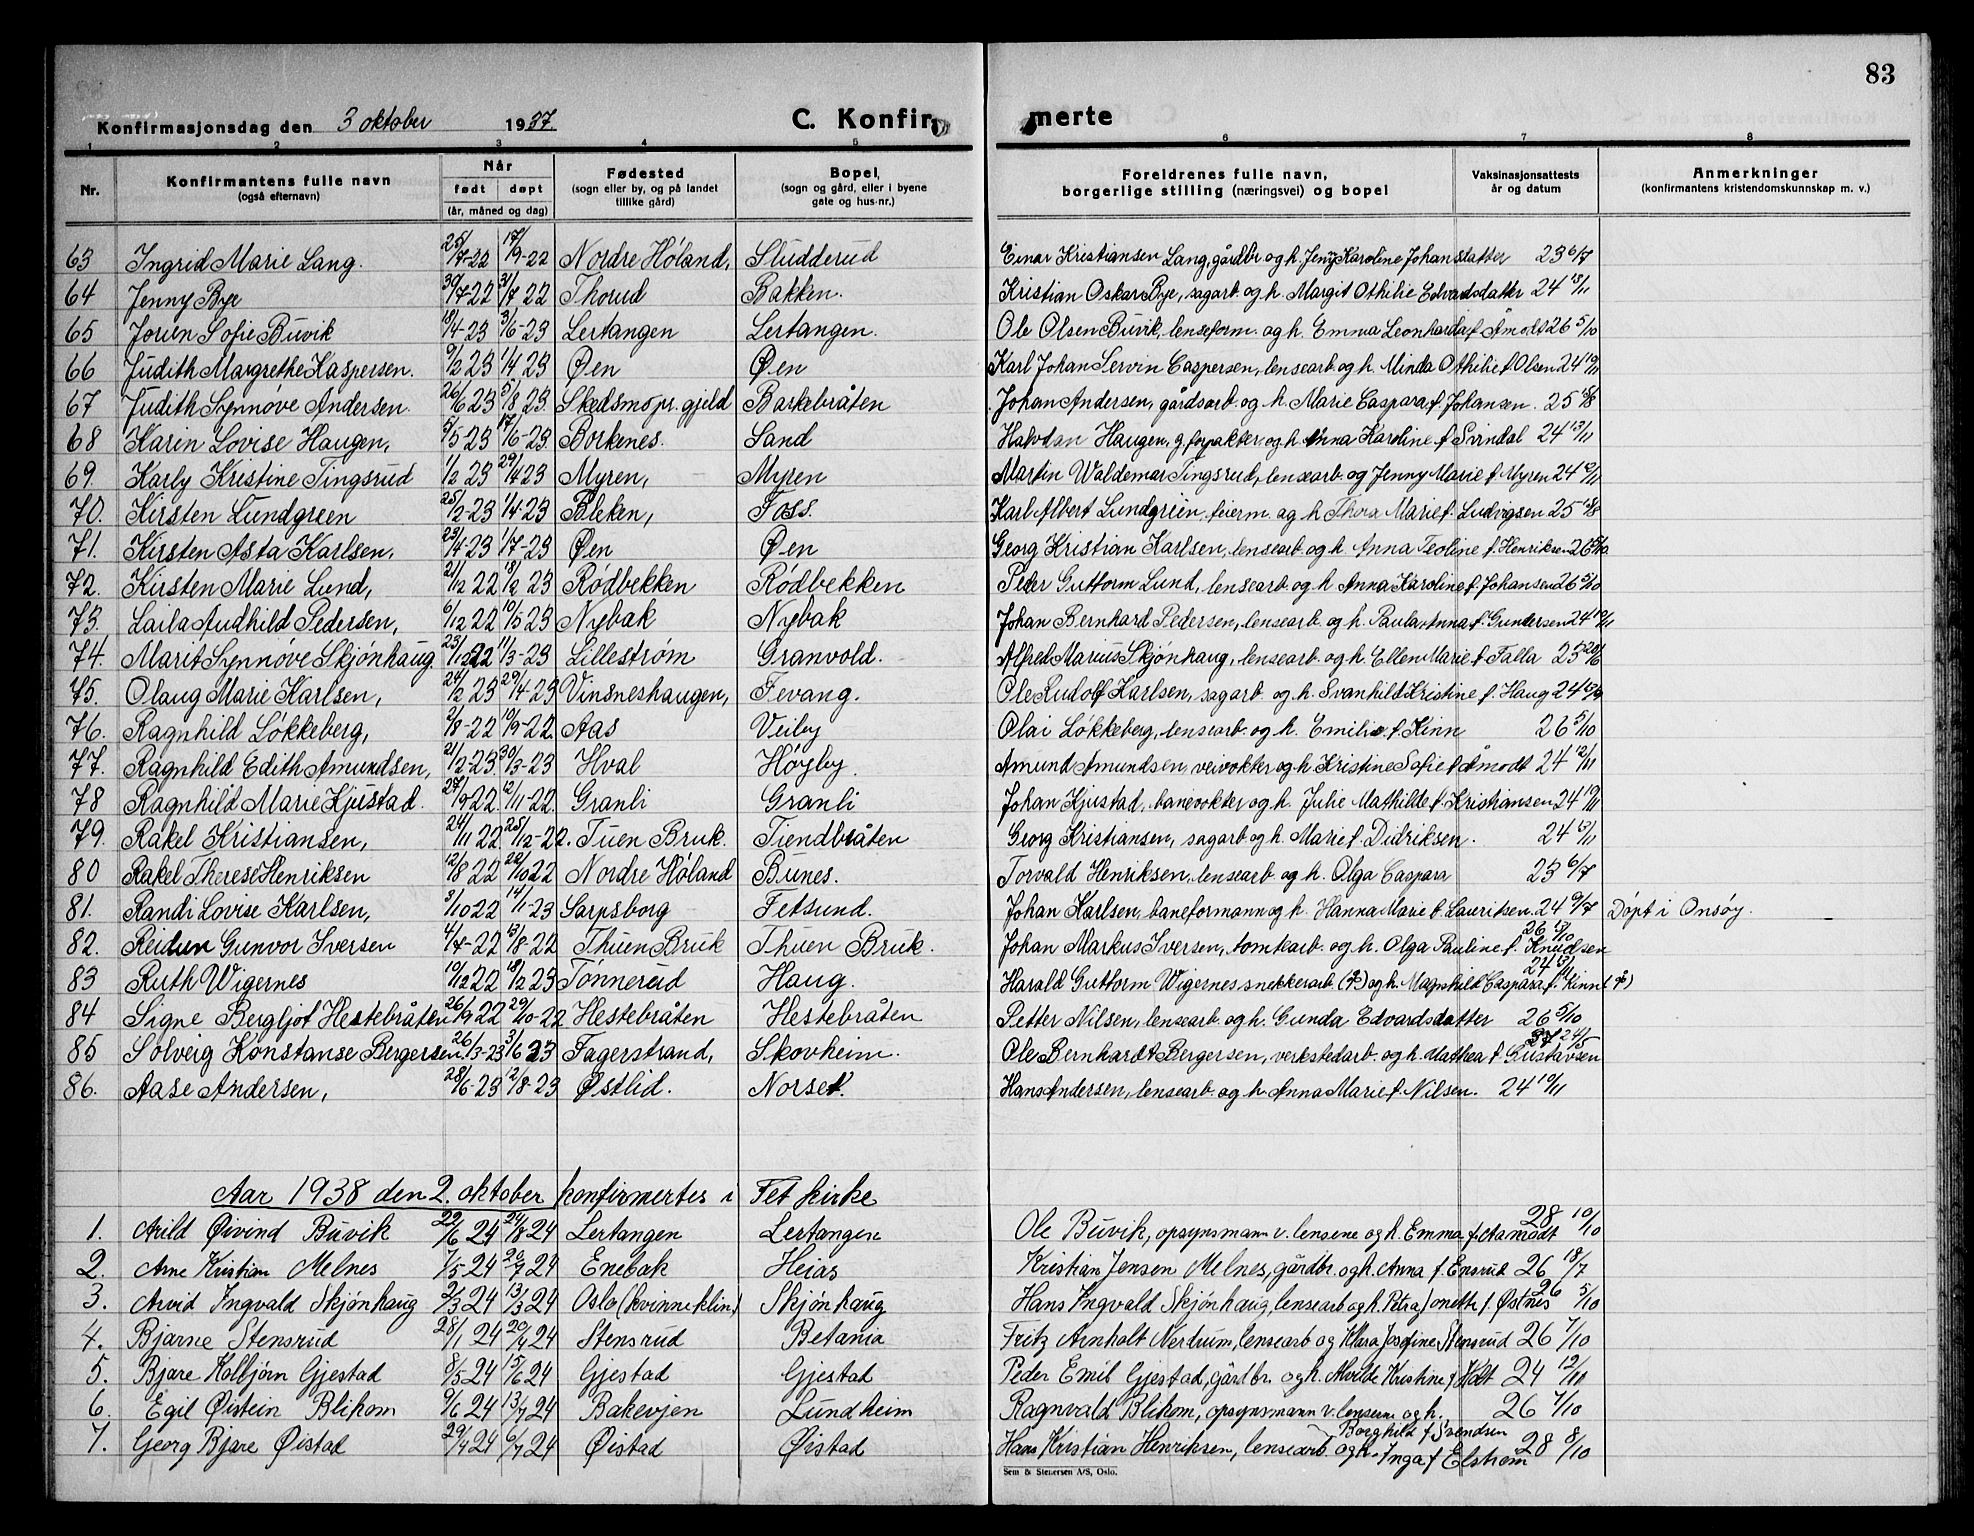 83
Konfirmasjonsdag den 3 oktober 1937. C. Konfir merte
1 2 3 4 5 6 7 8
Nr. Konfirmantens fulle navn (også efternavn) Når født døpt (år, måned og dag) Fødested (sogn eller by, og på landet tillike gård) Bopel, (sogn og gård, eller i byene gate og hus-nr.) Foreldrenes fulle navn, borgerlige stilling (næringsvei) og bopel Vaksinasjonsattests år og datum Anmerkninger (konfirmantens kristendomskunnskap m. v.)
63 Ingrid Marie Lang. 25/7-22 17/9-22 Nordre Høland, Sludderud Einar Kristiansen Lang, gårdbr og h. Jenny Karoline Johansdatter 23 6/7
64 Jenny Bye 30/7 22 31/7 22 Thorud Bakken. Kristian Oskar Bye, sagarb. og h. Margit Othilie Edvardsdatter 24 13/11
65 Jorun Sofie Buvik 18/4-23 3/6-23 Lertangen Lertangen. Ole Olsen Buvik, lenseform. og h. Emma Leonharda f. Åmodt 26 5/10
66 Judith Margrethe Kaspersen. 9/2 23 1/4 23 Øen Øen Karl Johan Servin Caspersen, lensearb. og h. Minda Othilie f. Olsen 24 19/11
67 Judith Synnøve Andersen. 26/6 23 5/8 23. Skedsmo pr. gjeld Barkebråten Johan Andersen, gårdsarb. og h. Marie Caspara f. Johansen. 25
68 Karin Lovise Haugen, 5/5-23 17/6-23 Borkenes. Sand Halvdan Haugen, g. forpakter og h. Anna Karoline f Svindal 24 13/11
69. Karly Kristine Tingsrud 1/2 23 29/4 23 Myren, Myren Martin Waldemar Tingsrud, lensearb. og Jenny Marie f. Myren 24
70. Kirsten Lundgreen 25/2-23 1/4-23 Bleken, Foss. Karl Albert Lundgreen, feierm. og h Thora Marie f. Ludvigsen 25
71. Kirsten Asta Karlsen, 23/4-23 1/7-23 Øen Øen Georg Kristian Karlsen, lensearb. og h. Anna Teoline f. Henriksen 26 5/10
72. Kirsten Marie Lund, 21/12 22 18/2 23 Rødbekken Rødbekken Peder Guttorm Lund, lensearb. og h Anna Karoline f. Johansen 26 5/10
73. Laila Audhild Pedersen, 6/12 22 10/5 23 Nybak Nybak Johan Bernhard Pedersen, lensearb. og h. Paula Anna f. Gundersen 24
74. Marit Synnøve Skjønhaug 23/10 22 11/3-23 Lillestrøm Granvold. Alfred Marius Skjønhaug, lensearb. og h. Ellen Marie f. Falla 25 20/6
75. Olaug Marie Karlsen, 24/2 23 29/4-23 Vinsneshaugen, Fevang. Ole Rudolf Karlsen, sagarb. og h. Svanhild Kristine f. Haug 24
76. Ragnhild Løkkeberg, 2/8-22 10/9-22. Aas Veiby Olai Løkkeberg, lensearb. og h. Emilie f. Kinn 26 5/10
77. Ragnhild Edith Amundsen, 21/2-23. 30/3-23 Hval Høyby. Amund Amundsen, veivokter og h. Kristine Sofie f. Åmodt 24 12/11
78 Ragnhild Marie Kjustad. 27/9 22. 12/11-22. Granli Granli Johan Kjustad, banevokter og h. Julie Mathilde f. Kristiansen 24 19/11
79. Rakel Kristiansen, 24/11 22. 25/12-22. Tuen Bruk. Tiendbråten Georg Kristiansen, sagarb. og h. Marie f. Didriksen. 24
80 Rakel Therese Henriksen 12/8 22 22/10 22 Nordre Høland Bunes. Torvald Henriksen, lensearb. og h. Olga Caspara 23 6/7
81. Randi Lovise Karlsen, 3/10 22 14/1-23 Sarpsborg Fetsund. Johan Karlsen, baneformann og h. Hanna Marie f. Lauritsen. 24 9/7 Døpt i Onsøy.
82. Reidun Gunvor Iversen 4/7-22 13/8-22 Thuen Bruk Thuen Bruk. Johan Markus Iversen, tomtearb. og h. Olga Pauline f. Knudsen 26
83 Ruth Wigernes 10/12 22 18/2 23 Tønnerud Haug. Harald Guttorm Wigernes snekkerarb. og h. Magnhild Caspara f. Kinn 24
84 Signe Bergljot Hestebråten 26/9 22 29/10-22 Hestebråten Hestebråten Petter Nilsen, lensearb. og h. Gunda Edvardsdatter 26 5/10
85 Solveig Konstanse Bergersen. 26/3-23 3/6 23 Fagerstrand, Skovheim. Ole Bernhardt Bergersen, verkstedarb. og h. Mathea f. Gustavsen 37 24/5
86. Aase Andersen, 28/6-23 12/8-23 Østlid. Norset. Hans Andersen, lensearb. og h. Anna Marie f. Nilsen. 24 10/11
Aar 1938 den 2. oktober konfirmertes i Fet kirke
1. Arild Øivind Buvik 22/6 24 24/8 24 Lertangen Lertangen Ole Buvik, opsynsmann v. lensene og h. Emma f. Aamodt 28 10/10
2. Arne Kristian Melnes 7/5-24 20/7 24 Enebak Heias Kristian Jensen Melnes, gårdbr. og h. Anna f. Ensrud 26 18/7
3. Arvid Ingvald Skjønhaug 2/3 24 13/3 24 Oslo (kvinneklin) Skjønhaug Hans Ingvald Skjønhaug, lensearb og h. Petra Jonette f. Østnes 26 5/10
4. Bjarne Stensrud 28/1 24 20/4 24 Stensrud Betania Fritz Arnholt Nerdrum, lensearb og Klara Josefine Stensrud 26 7/10
5. Bjare Kolbjørn Gjestad 8/5 24 15/6 24 Gjestad Gjestad Peder Emil Gjestad, gårdbr. og h. Alvilde Kristine f. Holt 24 12/10
6. Egil Øistein Blikom 9/6 24 13/7 24 Bakevjen Lundheim Ragnvald Blikom, opsynsmann v. lensene og h. Borghild f Svendsen 26 7/10
7. Georg Bjare Øistad 29/4 24 6/7 24 Øistad Øistad Hans Kristian Henriksen, lensearb. og h. Inga f Elstrøm 28 8/10
Sem & Stenersen A/S, Oslo.